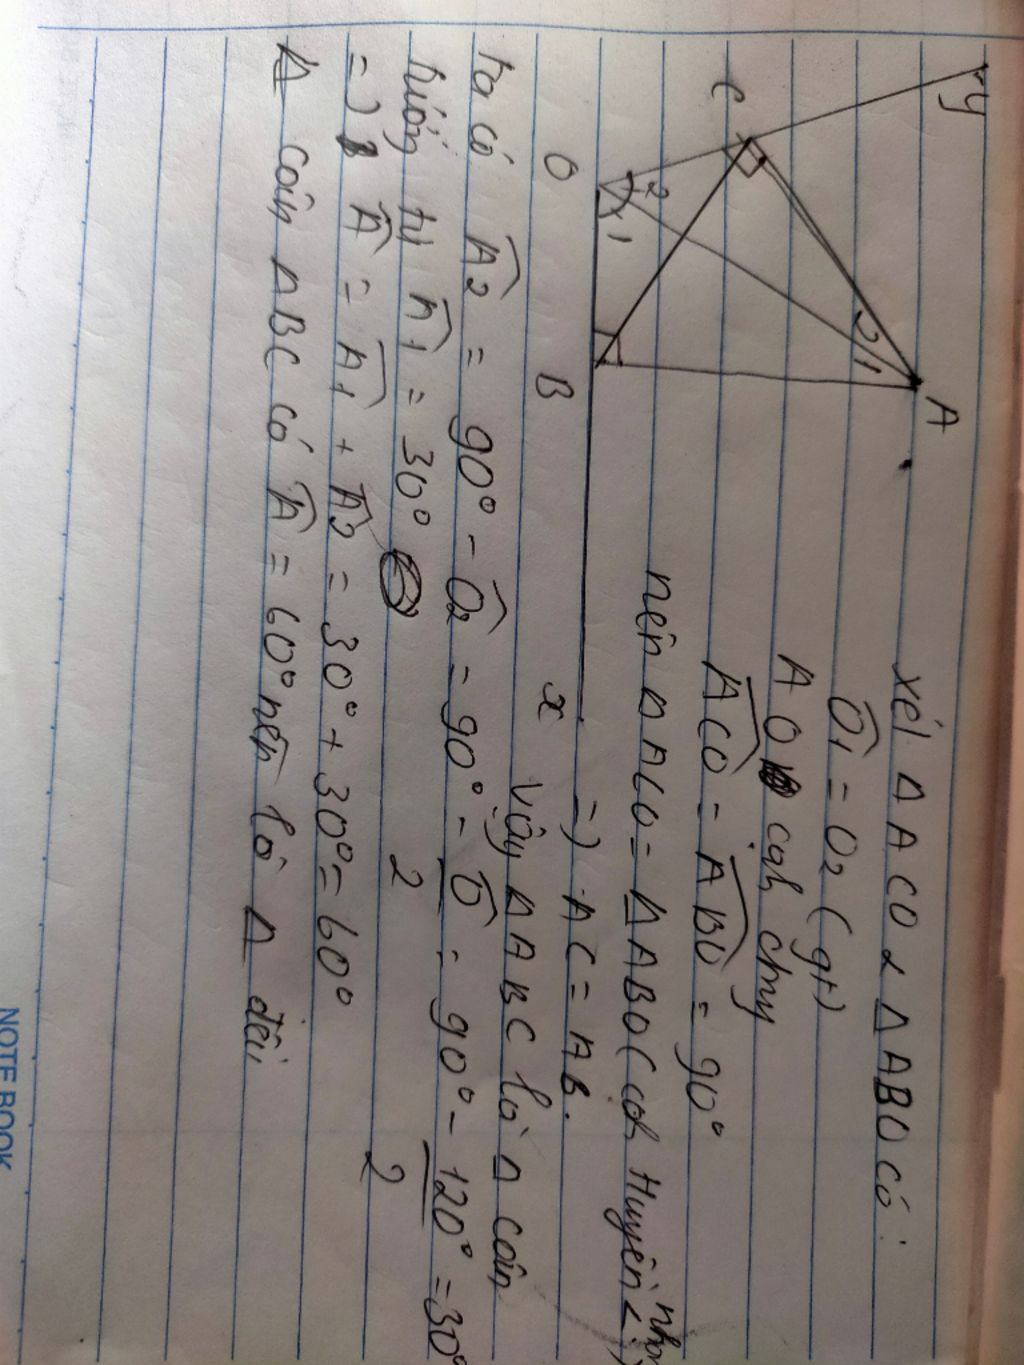 y
A
2 1
C
2
1
O
B
x
xét Δ ACO & Δ ABO có:
Ô1 = O2 (gt)
A O cạh chug
ACO = ABO = 90°
nên Δ ACO = Δ ABO (cạh Huyền nhọn)
=) AC = AB.
Vậy Δ ABC là Δ cân
ta có Â2 = 90° - Ô2 = 90° - Ô/2 = 90° - 120°/2 = 30°
tương tự Â1 = 30°
=) Â = Â1 + Â2 = 30° + 30° = 60°
Δ cân ABC có Â = 60° nên là Δ đều
NOTE BOOK